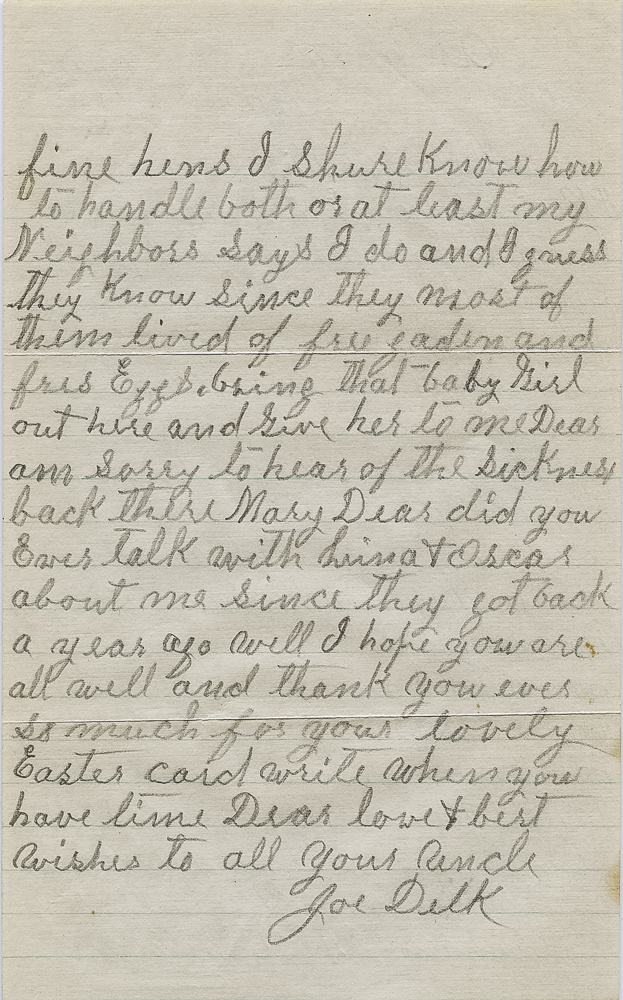 fine hens I shure Know how
to handle both or at least my
Neighbors says I do and I guess
they Know since they most of
them lived of free gaden and
fres Eggs. bring that baby Girl
out here and Give her to me Dear
am sorry to hear of the sickness
back there Mary Dear did you
Ever talk with Lina & Oscar
about me since they got back
a year ago well I hope you are
all well and thank you ever
so much for your lovely
Easter card write when you
have time Dear love & best
wishes to all your uncle
Joe Delk